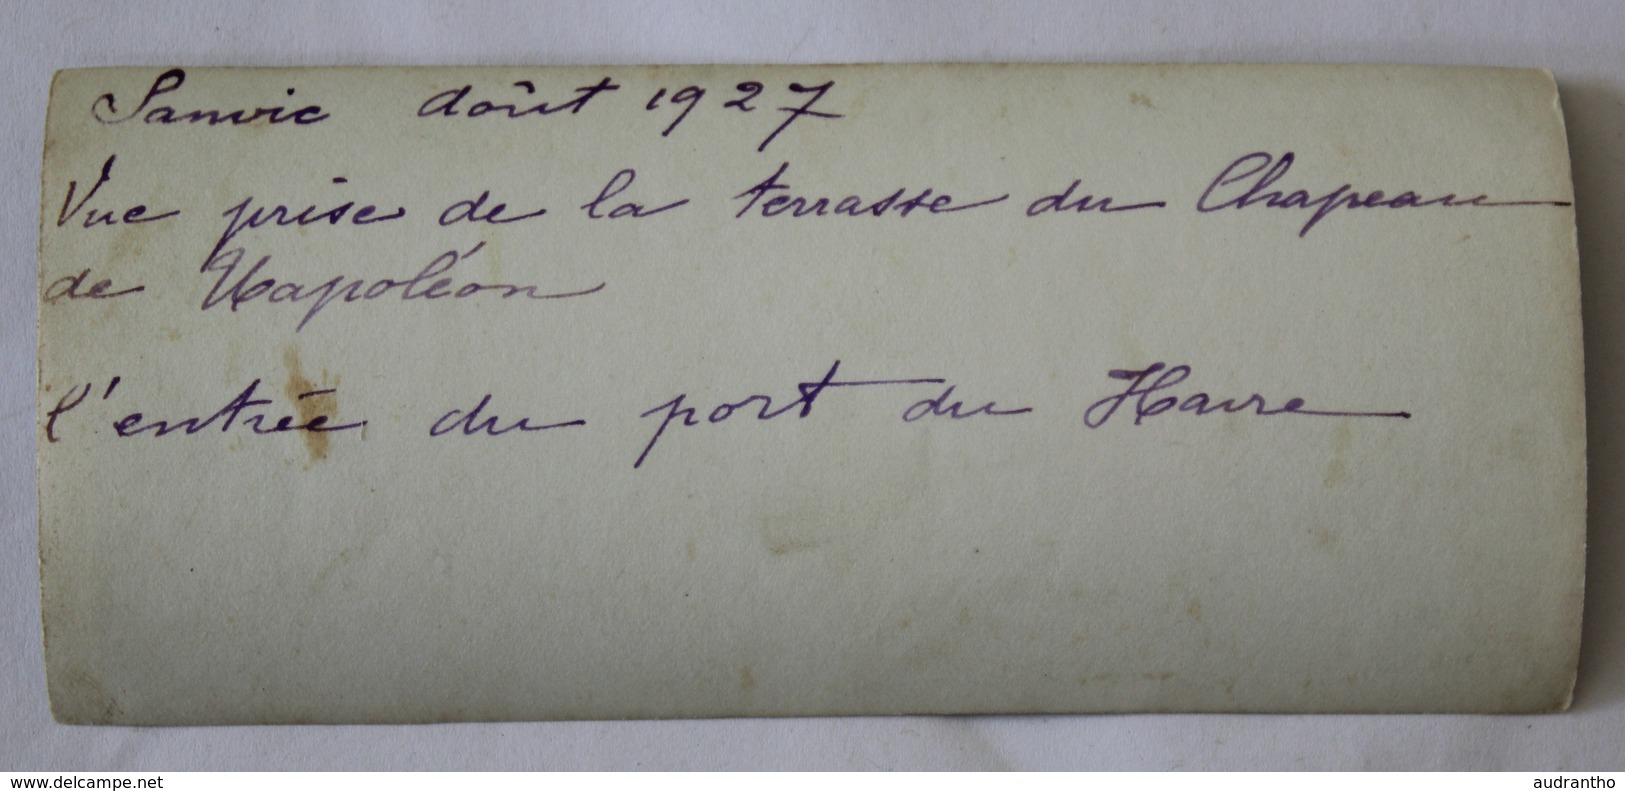 Sanvic août 1927
Vue prise de la terrasse du Chapeau
de Napoléon
l'entrée du port du Havre
www.delcampe.net
audrantho